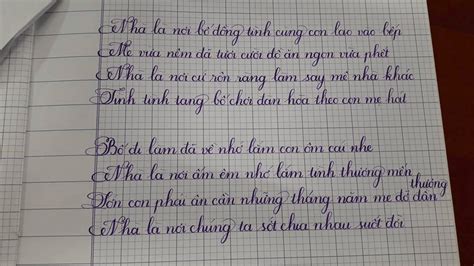 Nhà là nơi bố đồng tình cùng con lao vào bếp
Mẹ vừa nếm đã tươi cười đồ ăn ngon vừa phết
Nhà là nơi cứ rộn ràng làm say mê nhà khác
Tình tính tang bố chơi đàn hòa theo con mẹ hát
Bố đi làm đã về nhớ lắm con ôm cái nhé
Nhà là nơi ấm êm nhớ lắm tình thương mến thương
Tớn con phải ân cần những tháng năm mẹ dỗ dành
Nhà là nơi chúng ta sớt chia nhau suốt đời